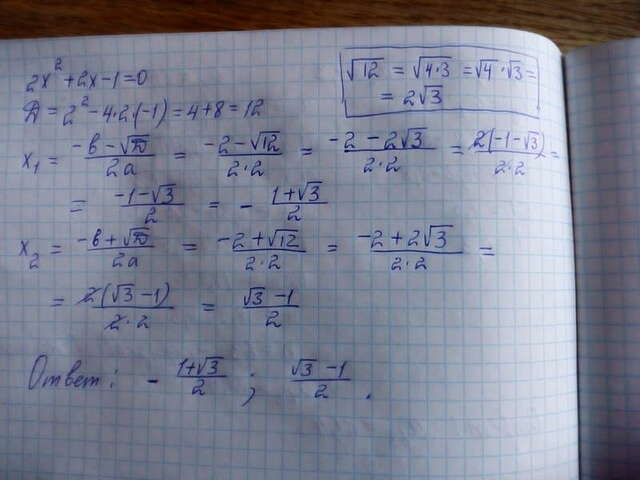 2x² + 2x - 1 = 0
Д = 2² - 4·2·(-1) = 4 + 8 = 12
√12 = √4·3 = √4·√3 =
= 2√3
x₁ = (-в - √Д)/2a = (-2 - √12)/2·2 = (-2 - 2√3)/2·2 = 2(-1 - √3)/2·2 =
= (-1 - √3)/2 = - (1 + √3)/2
x₂ = (-в + √Д)/2a = (-2 + √12)/2·2 = (-2 + 2√3)/2·2 =
= 2(√3 - 1)/2·2 = (√3 - 1)/2
Ответ: - (1 + √3)/2 ; (√3 - 1)/2 .